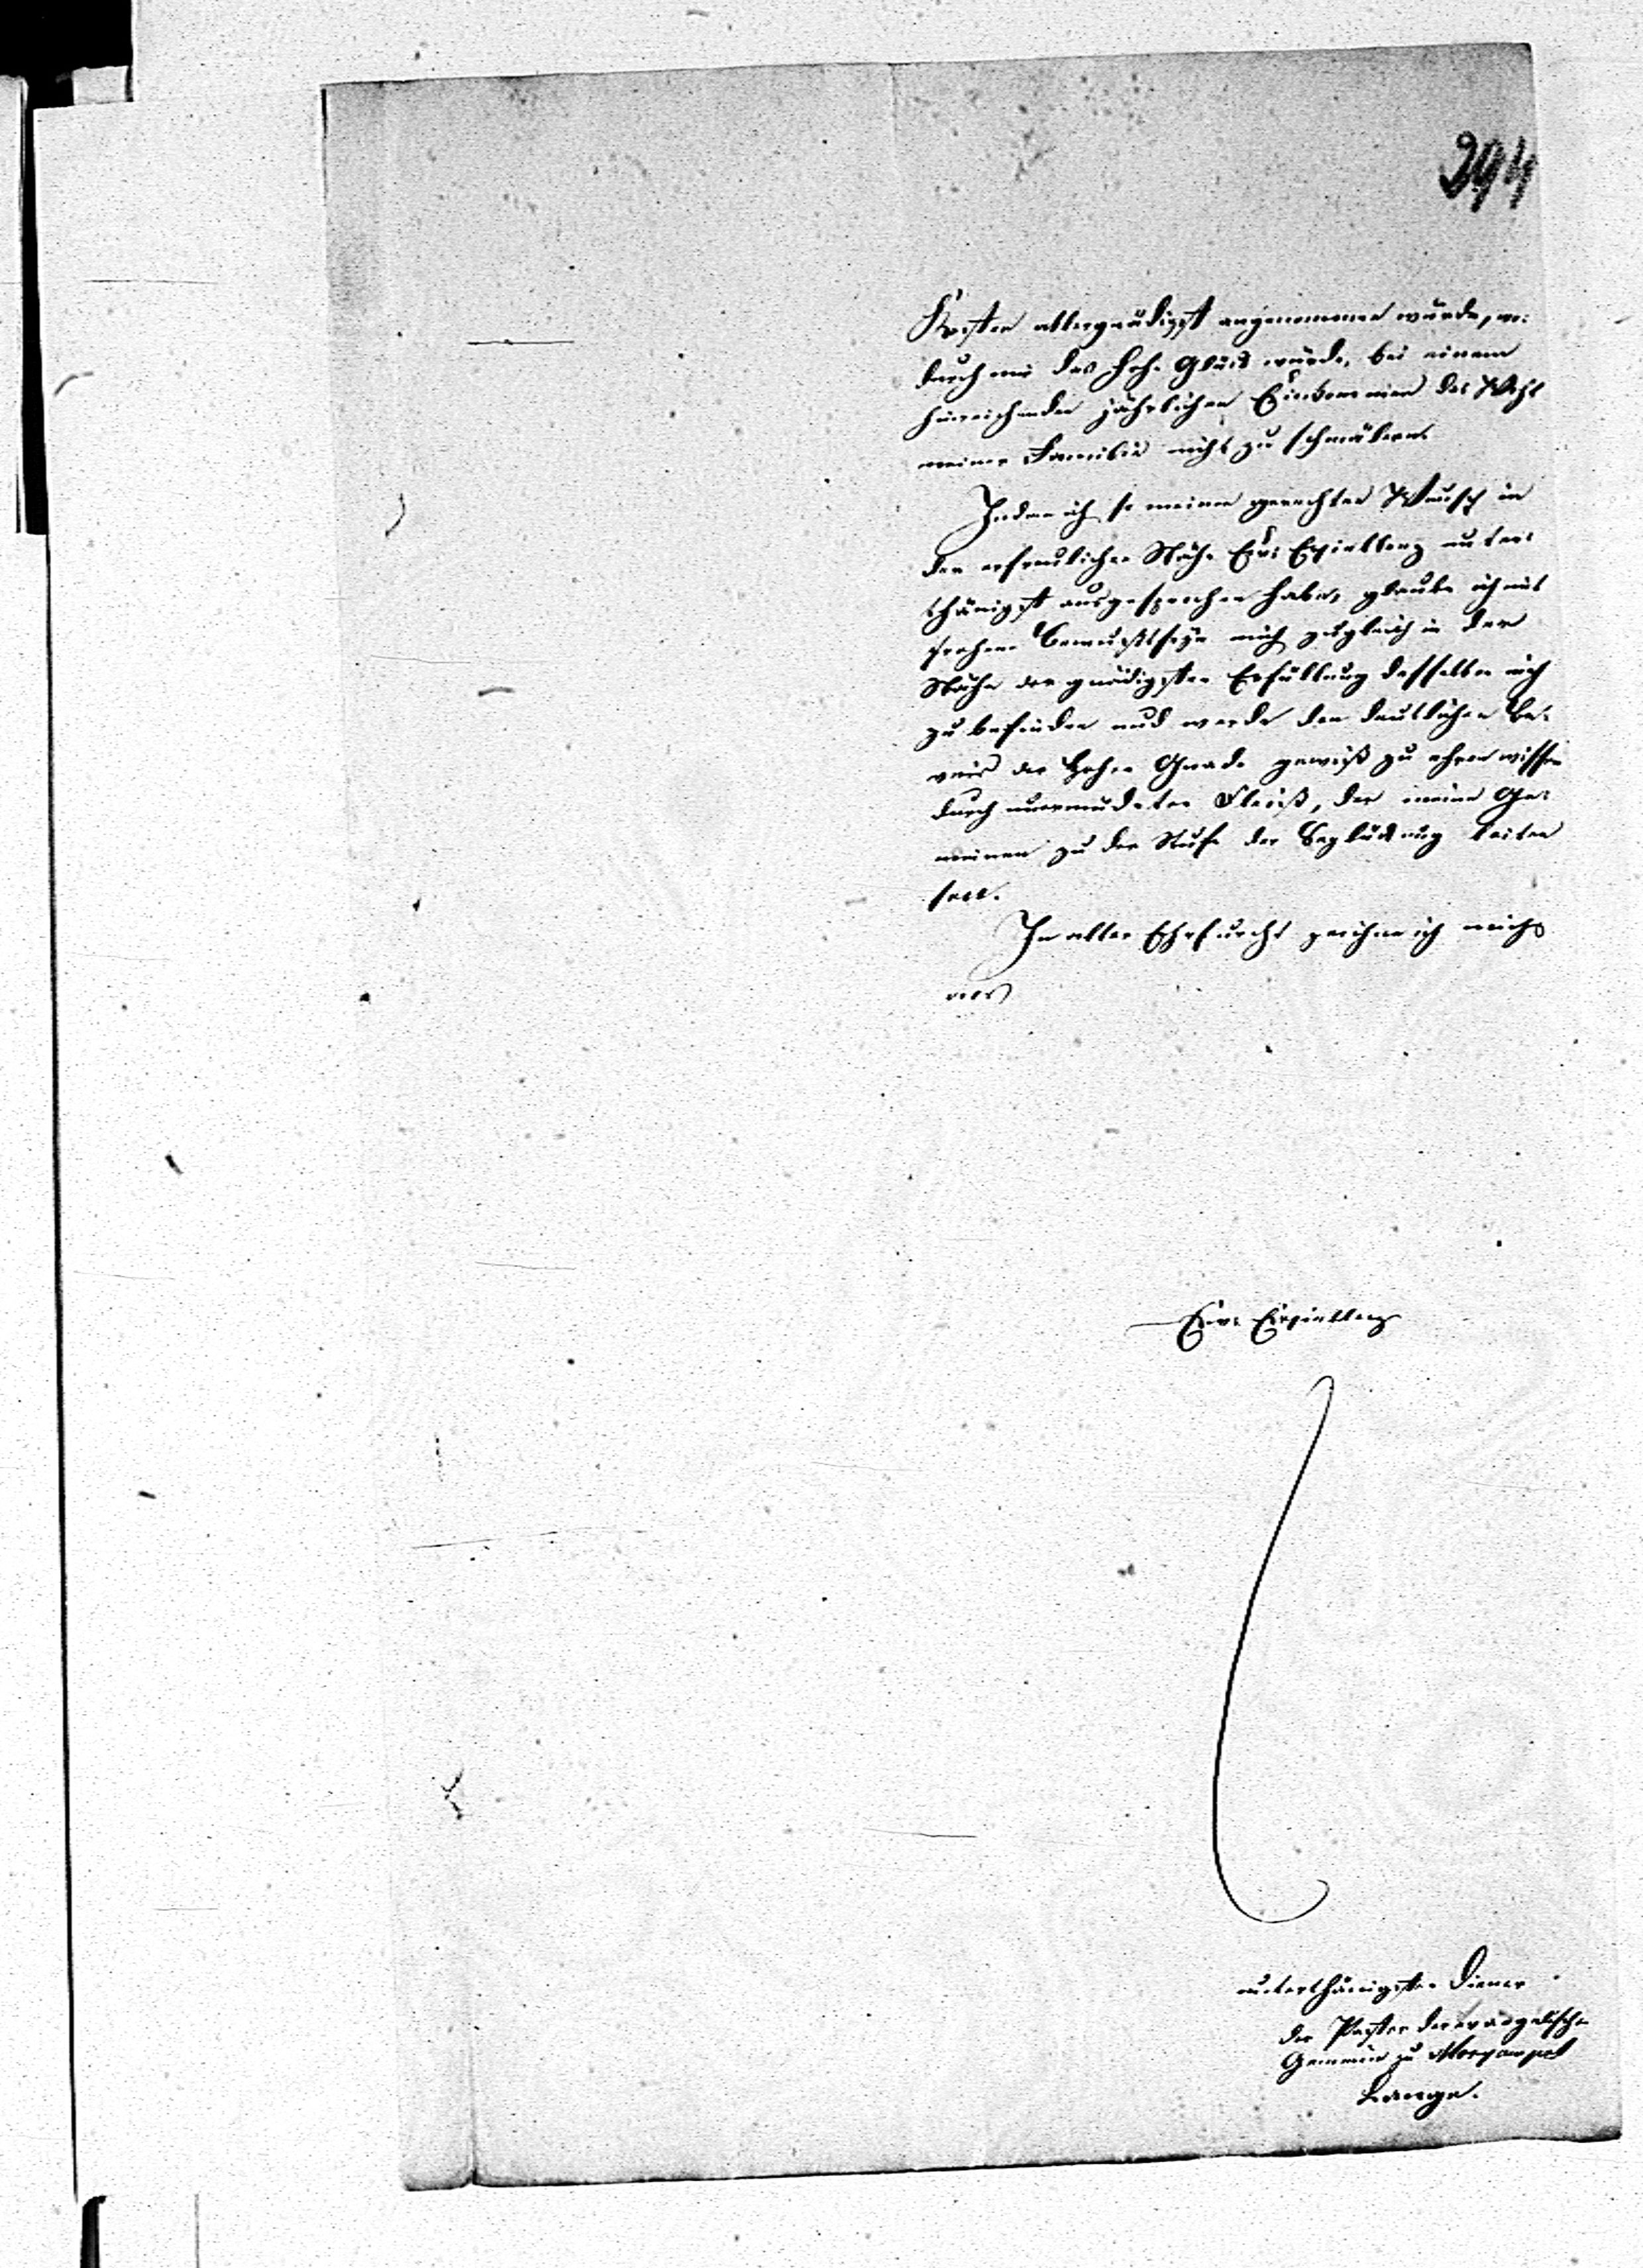 294
Kosten allergnädigst angenommen würde, wo-
durch mir das hohe Glück würde, bei einem
hinreichenden jährlichen Einkommen das Wohl
meiner Familie nicht zu schmälern.
Indem ich so meinen gerechten Wunsch in
der erfreulichen Nähe Ew: Exzellenz unter-
thänigst ausgesprochen habe, glaube ich mit
frohem Bewußtseyn mich zugleich in der
Nähe der gnädigsten Erfüllung desselben
zu befinden und werde den deutlichen Be-
weis der hohen Gnade gewiß zu ehren wissen
durch unermüdeten Fleiß, der meine Ge-
meinen zu der Stufe der Beglückung leiten
soll.
In aller Ehrfurcht zeichne ich mich
als
Ew: Exzellenz
unterthänigster Diener
der Pastor der evangelischen
Gemeine zu
Lange.